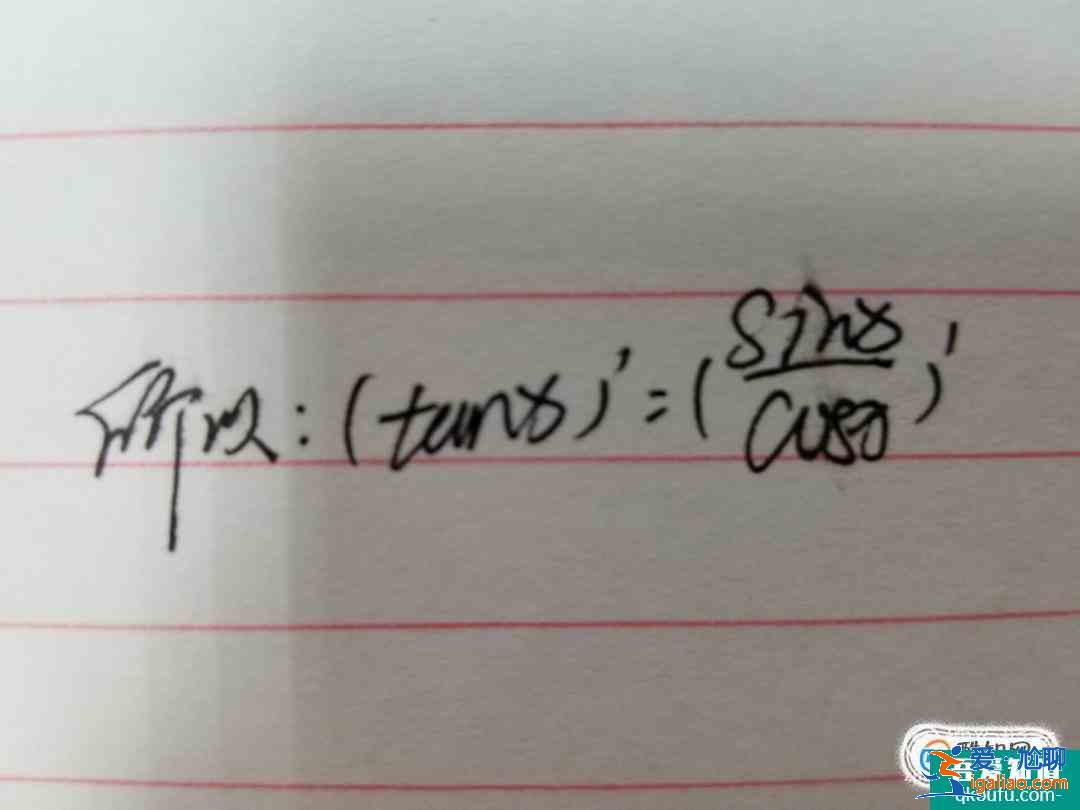 所以:(tanx)'=(sinx/cosx)'
爱尬聊
igaliao.com
qkoufu.com